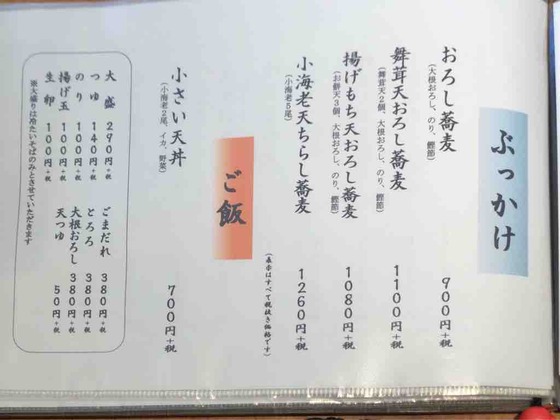 ぶっかけ
おろし蕎麦 900円+税
(大根おろし、のり、鰹節)
舞茸天おろし蕎麦 1100円+税
(舞茸天2個、大根おろし、のり、鰹節)
揚げもち天おろし蕎麦 1080円+税
(お餅天3個、大根おろし、のり、鰹節)
小海老天ちらし蕎麦 1260円+税
(小海老5尾)
(表示はすべて税抜き価格です)
ご飯
小さい天丼 700円+税
(小海老2尾、イカ、野菜)
大盛 290円+税
つゆ 140円+税
のり 100円+税
揚げ玉 100円+税
生卵 100円+税
ごまだれ 380円+税
とろろ 380円+税
大根おろし 380円+税
天つゆ 50円+税
※大盛りは冷たいそばのみとさせていただきます